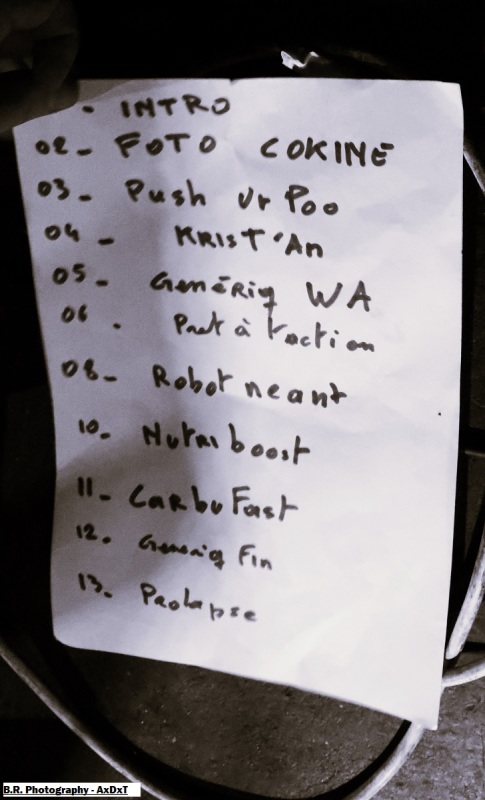 - INTRO
02 - FOTO COKINE
03 - Push Ur Poo
04 - KRIST'An
05 - Genériq WA
06 . Pret à
08 - Robot neant
10. Nutriboost
11 - CarbuFast
12. Generiq Fin
13. Prolapse
B.R. Photography - AxDxT